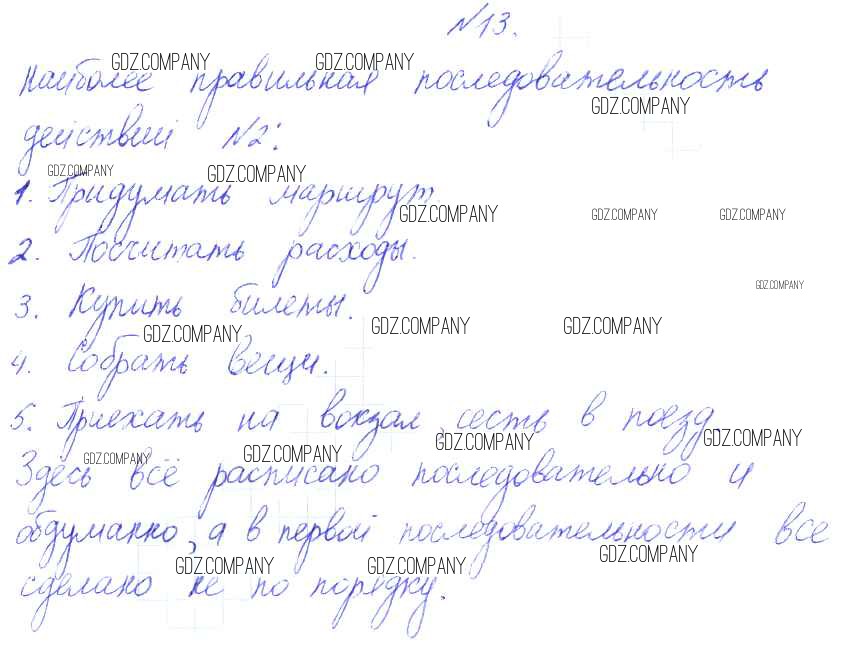 №13.
GDZ.COMPANY GDZ.COMPANY
Наиболее правильная последовательность
GDZ.COMPANY
действий №2:
GDZ.COMPANY GDZ.COMPANY
1. Придумать маршрут
GDZ.COMPANY GDZ.COMPANY GDZ.COMPANY
2. Посчитать расходы.
GDZ.COMPANY
3. Купить билеты.
GDZ.COMPANY GDZ.COMPANY GDZ.COMPANY
4. Собрать вещи.
5. Приехать на вокзал, сесть в поезд.
GDZ.COMPANY GDZ.COMPANY GDZ.COMPANY GDZ.COMPANY
Здесь всё расписано последовательно и
обдуманно, а в первой последовательности все
GDZ.COMPANY GDZ.COMPANY GDZ.COMPANY
сделано не по порядку.